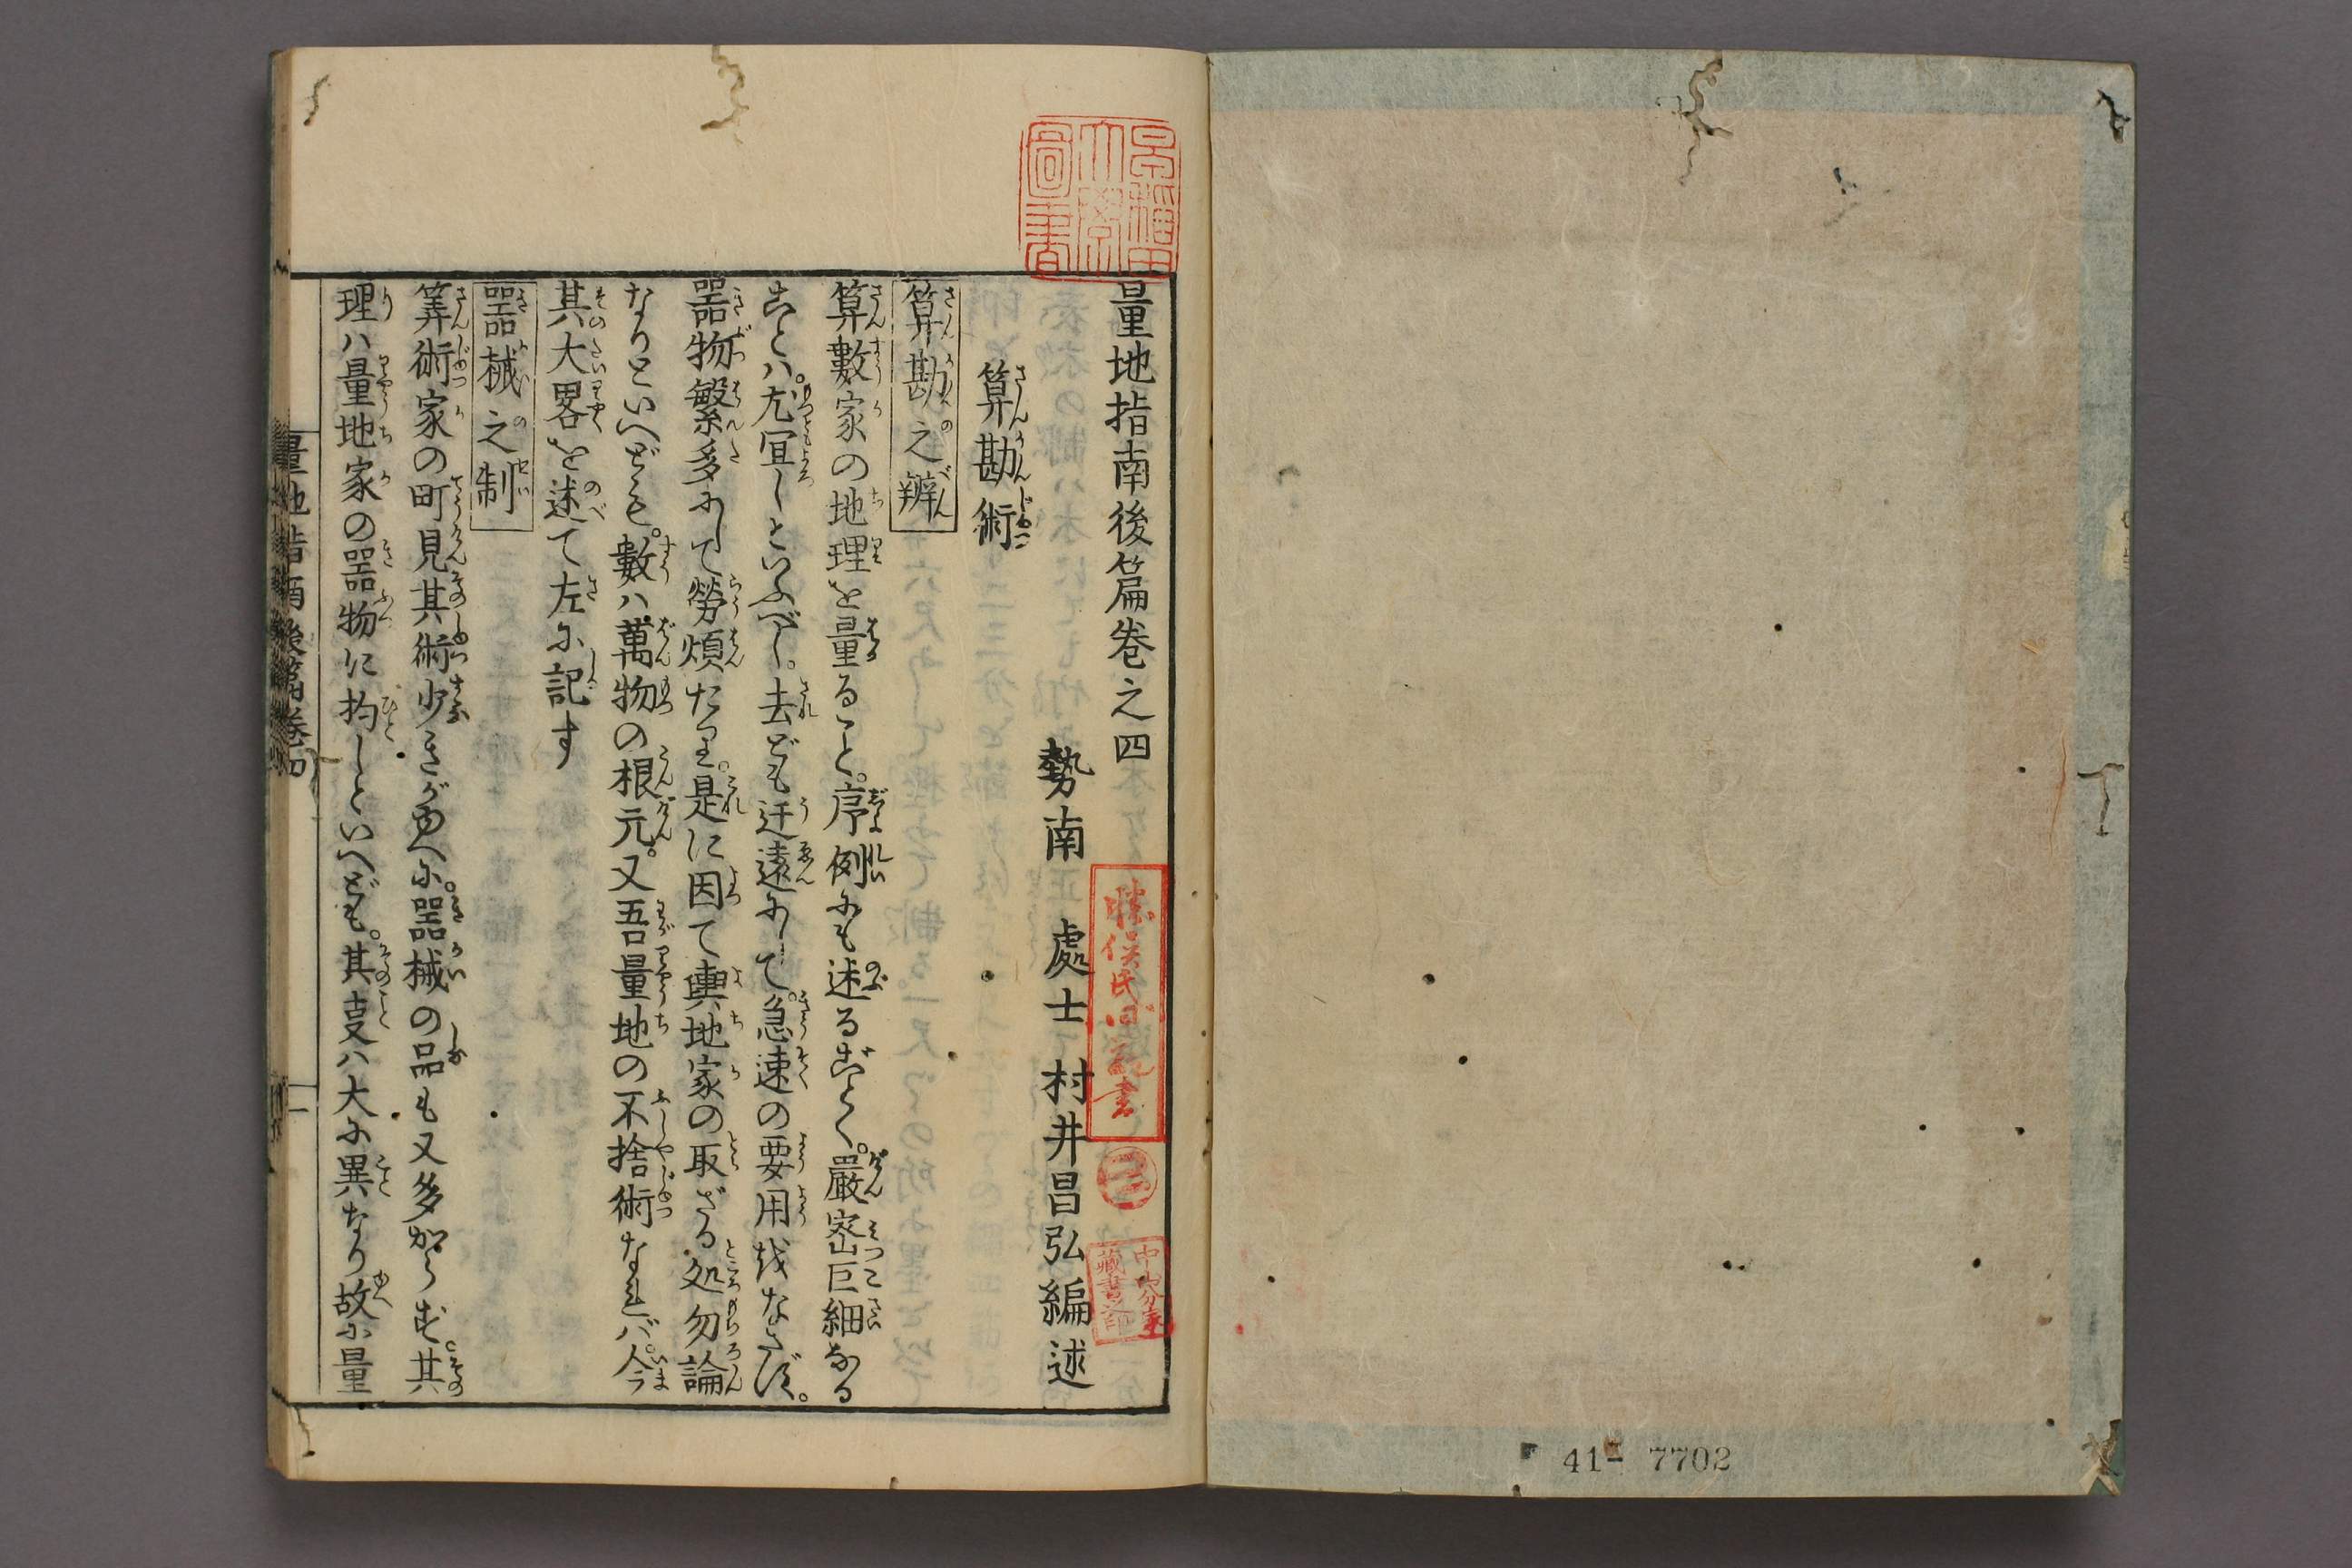 量地指南後篇巻之四
勢南　處士　村井昌弘編述
算勘術
算勘之辨
算數家の地理を量ること。序例にも述るごとく。嚴密巨細なる
ことハ。尤宜しといふべし。去ども迂遠にして。急速の要用をなさず。
器物繁多にして勞煩たり。是に因て輿地家の取ざる処勿論
なりといへども。數ハ萬物の根元。又吾量地の不捨術なれバ。今
其大畧を述て左に記す
器械之制
筭術家の町見其術少きがゆへに。器械の品も又多からず。其
理ハ量地家の器物に均しといへども。其支ハ大に異なり故に量
量地指南後篇巻四
一
早稲田大學圖書
中山分家藏書之印
41- 7702